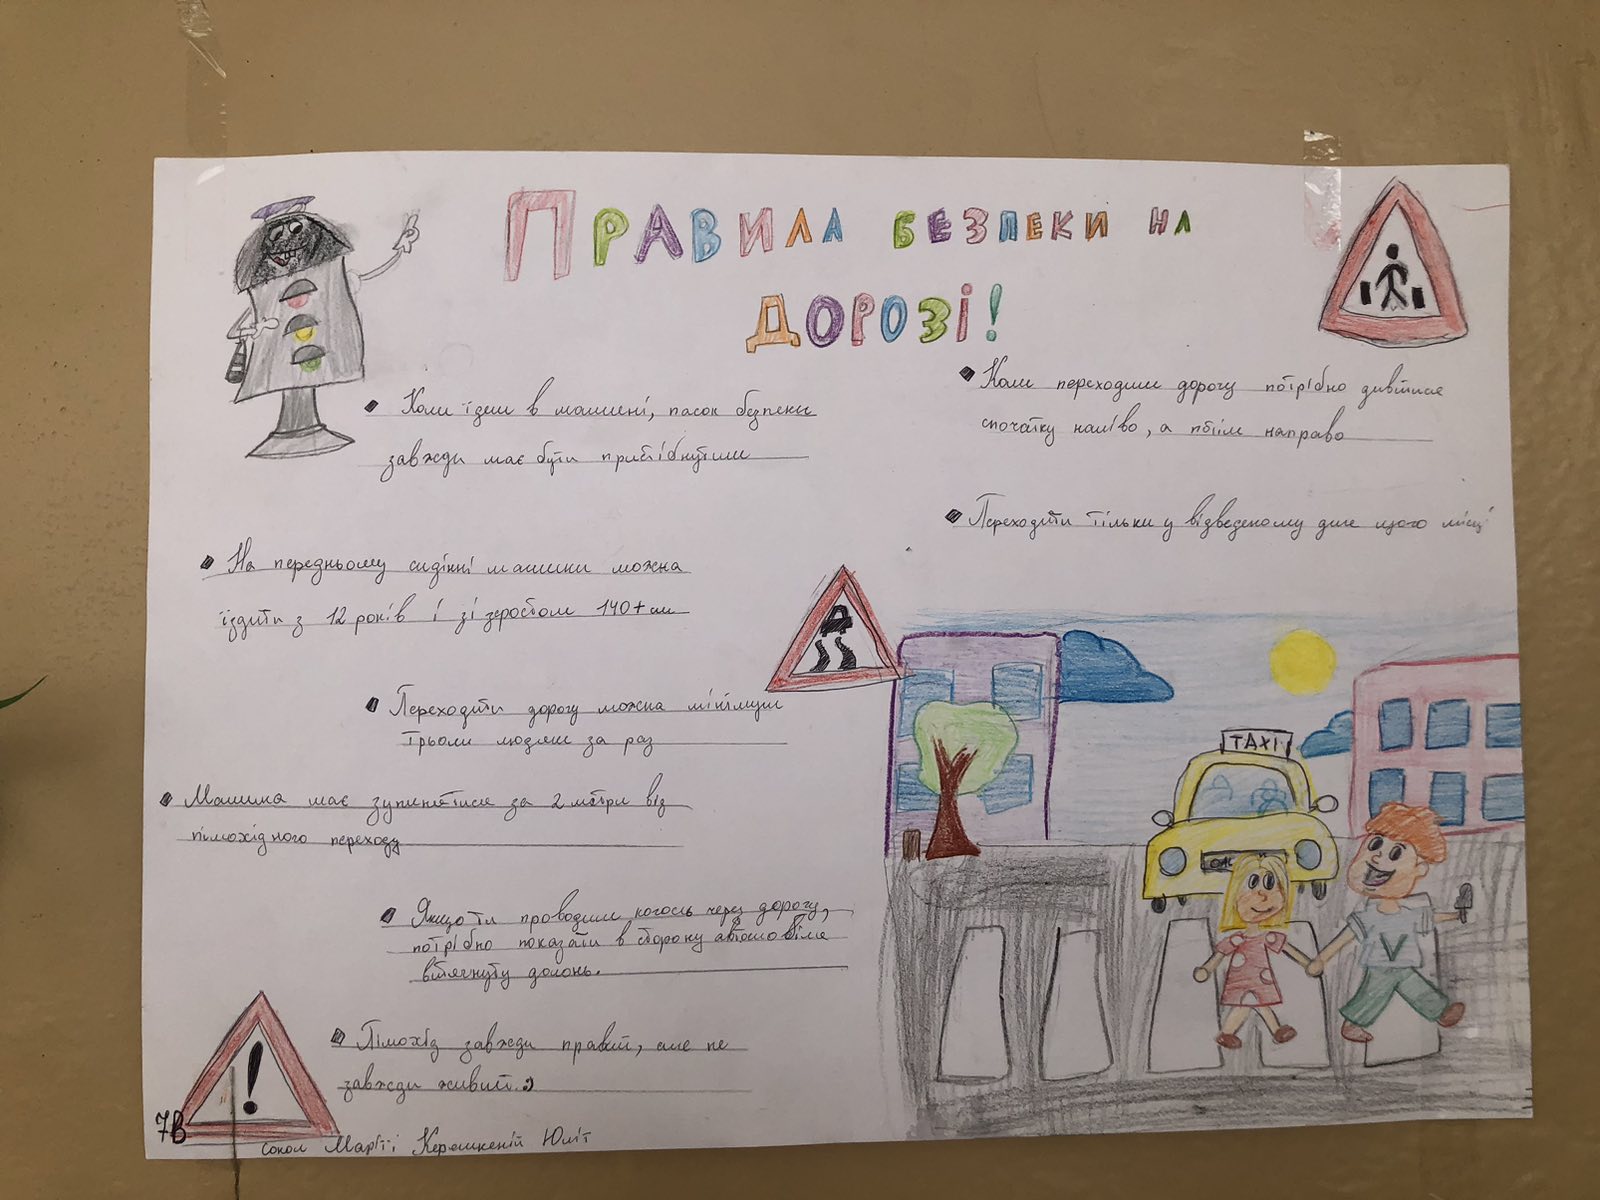 ПРАВИЛА БЕЗПЕКИ НА
ДОРОЗІ!
Коли їдеш в машині, пасок безпеки
завжди має бути пристібнутим
На передньому сидінні машини можна
їздити з 12 років і зі зростом 140+ см
Переходити дорогу можна мінімум
трьом людям за раз
Машина має зупинятися за 2 метри від
пішохідного переходу
Якщо ти проводиш когось через дорогу,
потрібно показати в сторону автомобіля
втягнуту долонь.
Пішохід завжди правий, але не
завжди живий.:)
Коли переходиш дорогу потрібно дивитися
спочатку наліво, а потім направо
Переходити тільки у відведеному для цього місці
TAXI
7В
Сокол Марітті Керешкеній Юліт